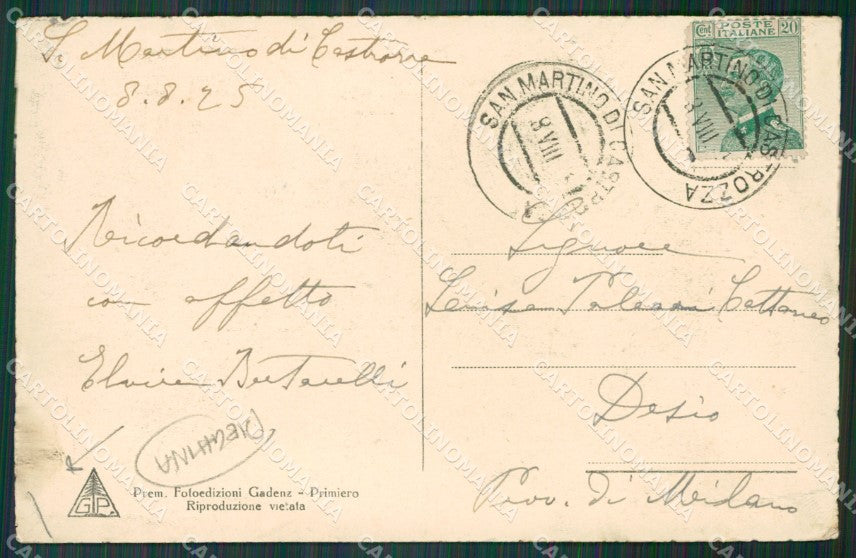 S. Martino di Castrozza
8.8.25
Ricordandoti
con affetto
Elvira Bertarelli
PIEGHINA
GP.
Prem. Fotoedizioni Gadenz - Primiero
Riproduzione vietata
Cent POSTE ITALIANE 20
SAN MARTINO DI CASTROZZA
8 VIII
SAN MARTINO DI CASTROZZA
8 VIII
Signora
Cattaneo
Desio
Prov. di Milano
CARTOLINOMANIA